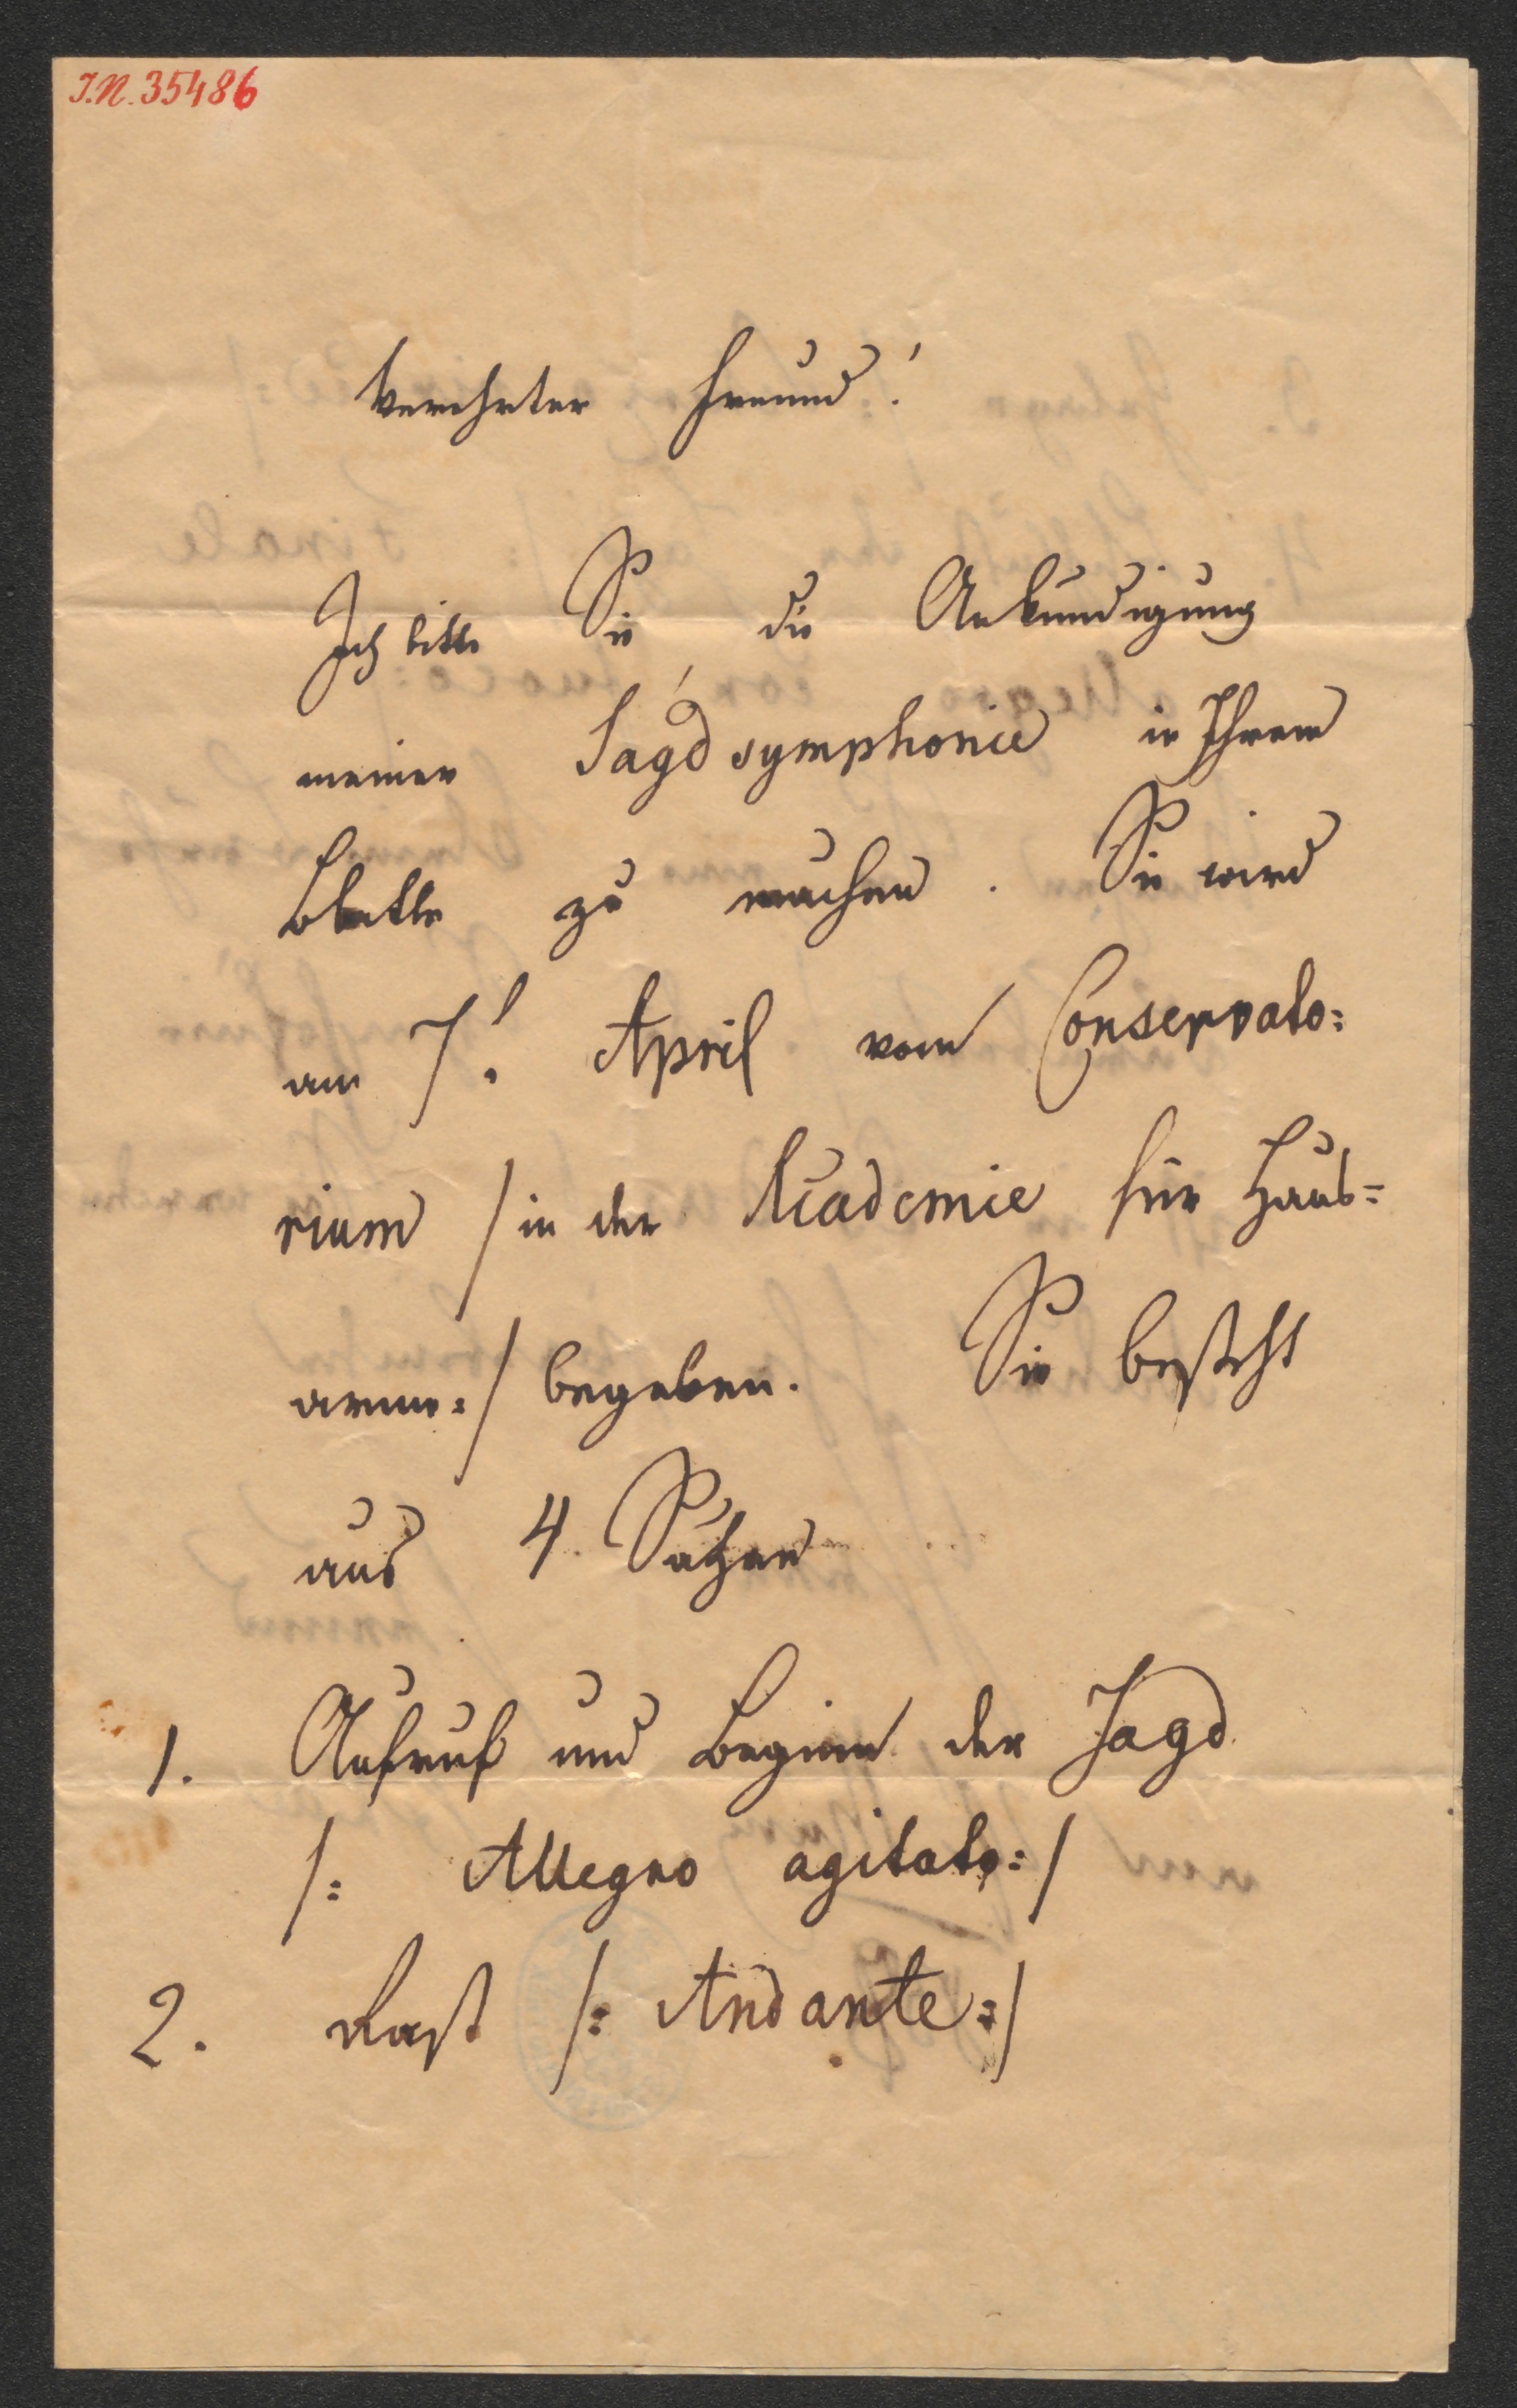 I.N. 35486
Verehrter Freund!
Ich bitte Sie die Ankündigung
meiner Jagdsymphonie in Ihrem
Blatte zu machen. Sie wird
am 7t April vom Conservato:
rium /in der Academie für Haus=
arme:/ begeben. Sie besteht
aus 4 Sätzen
1. Aufruf und Beginn der Jagd
/: Allegro agitato:/
2. Rast /: Andante:/